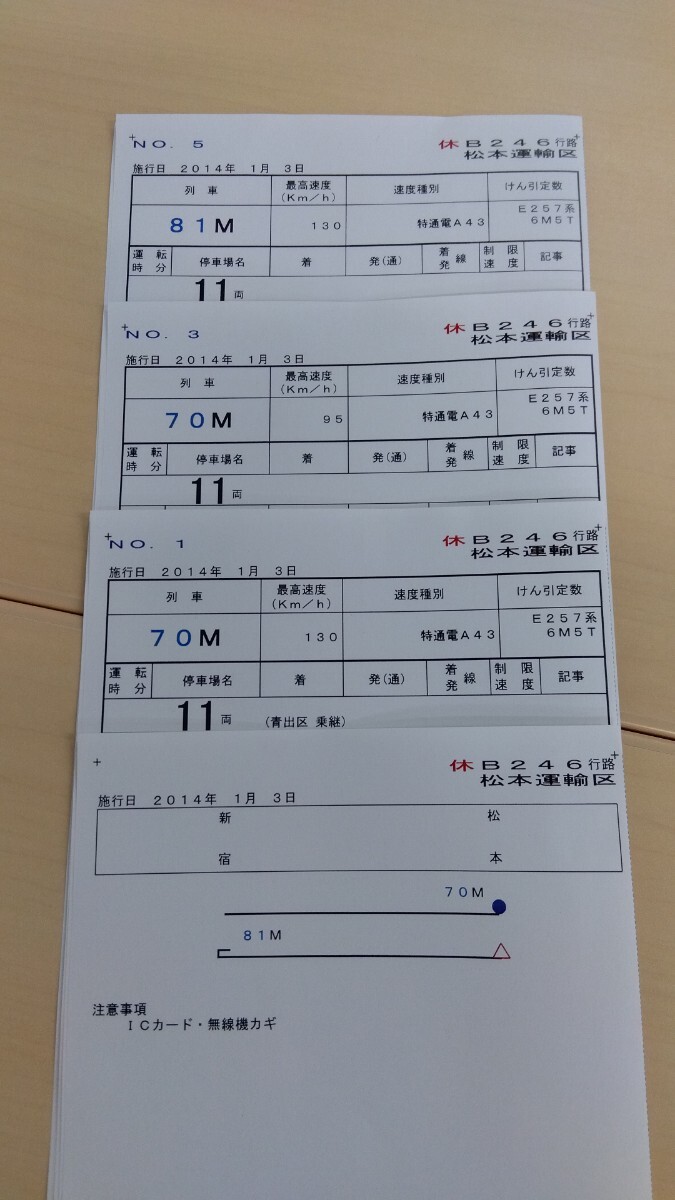 NO. 5 休B246行路
松本運輸区
施行日 2014年 1月 3日
列車 最高速度(Km/h) 速度種別 けん引定数
81M 130 特通電A43 E257系 6M5T
運転時分 停車場名 着 発(通) 着発線 制限速度 記事
11両
NO. 3 休B246行路
松本運輸区
施行日 2014年 1月 3日
列車 最高速度(Km/h) 速度種別 けん引定数
70M 95 特通電A43 E257系 6M5T
運転時分 停車場名 着 発(通) 着発線 制限速度 記事
11両
NO. 1 休B246行路
松本運輸区
施行日 2014年 1月 3日
列車 最高速度(Km/h) 速度種別 けん引定数
70M 130 特通電A43 E257系 6M5T
運転時分 停車場名 着 発(通) 着発線 制限速度 記事
11両 (青出区 乗継)
休B246行路
松本運輸区
施行日 2014年 1月 3日
新宿 松本
70M
81M
注意事項
ICカード・無線機カギ